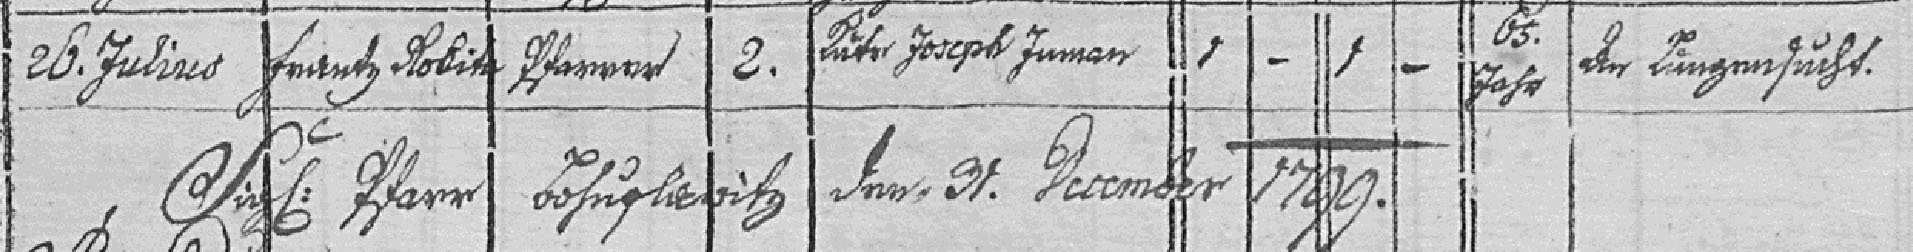 26. Julius Frantz Kobitz Pfarrer 2. Kutr Joseph Juman 1 - 1 - 65. Jahr An Lungensucht.
Sigl: Pfarr Bohuslawitz den 31. December 1799.